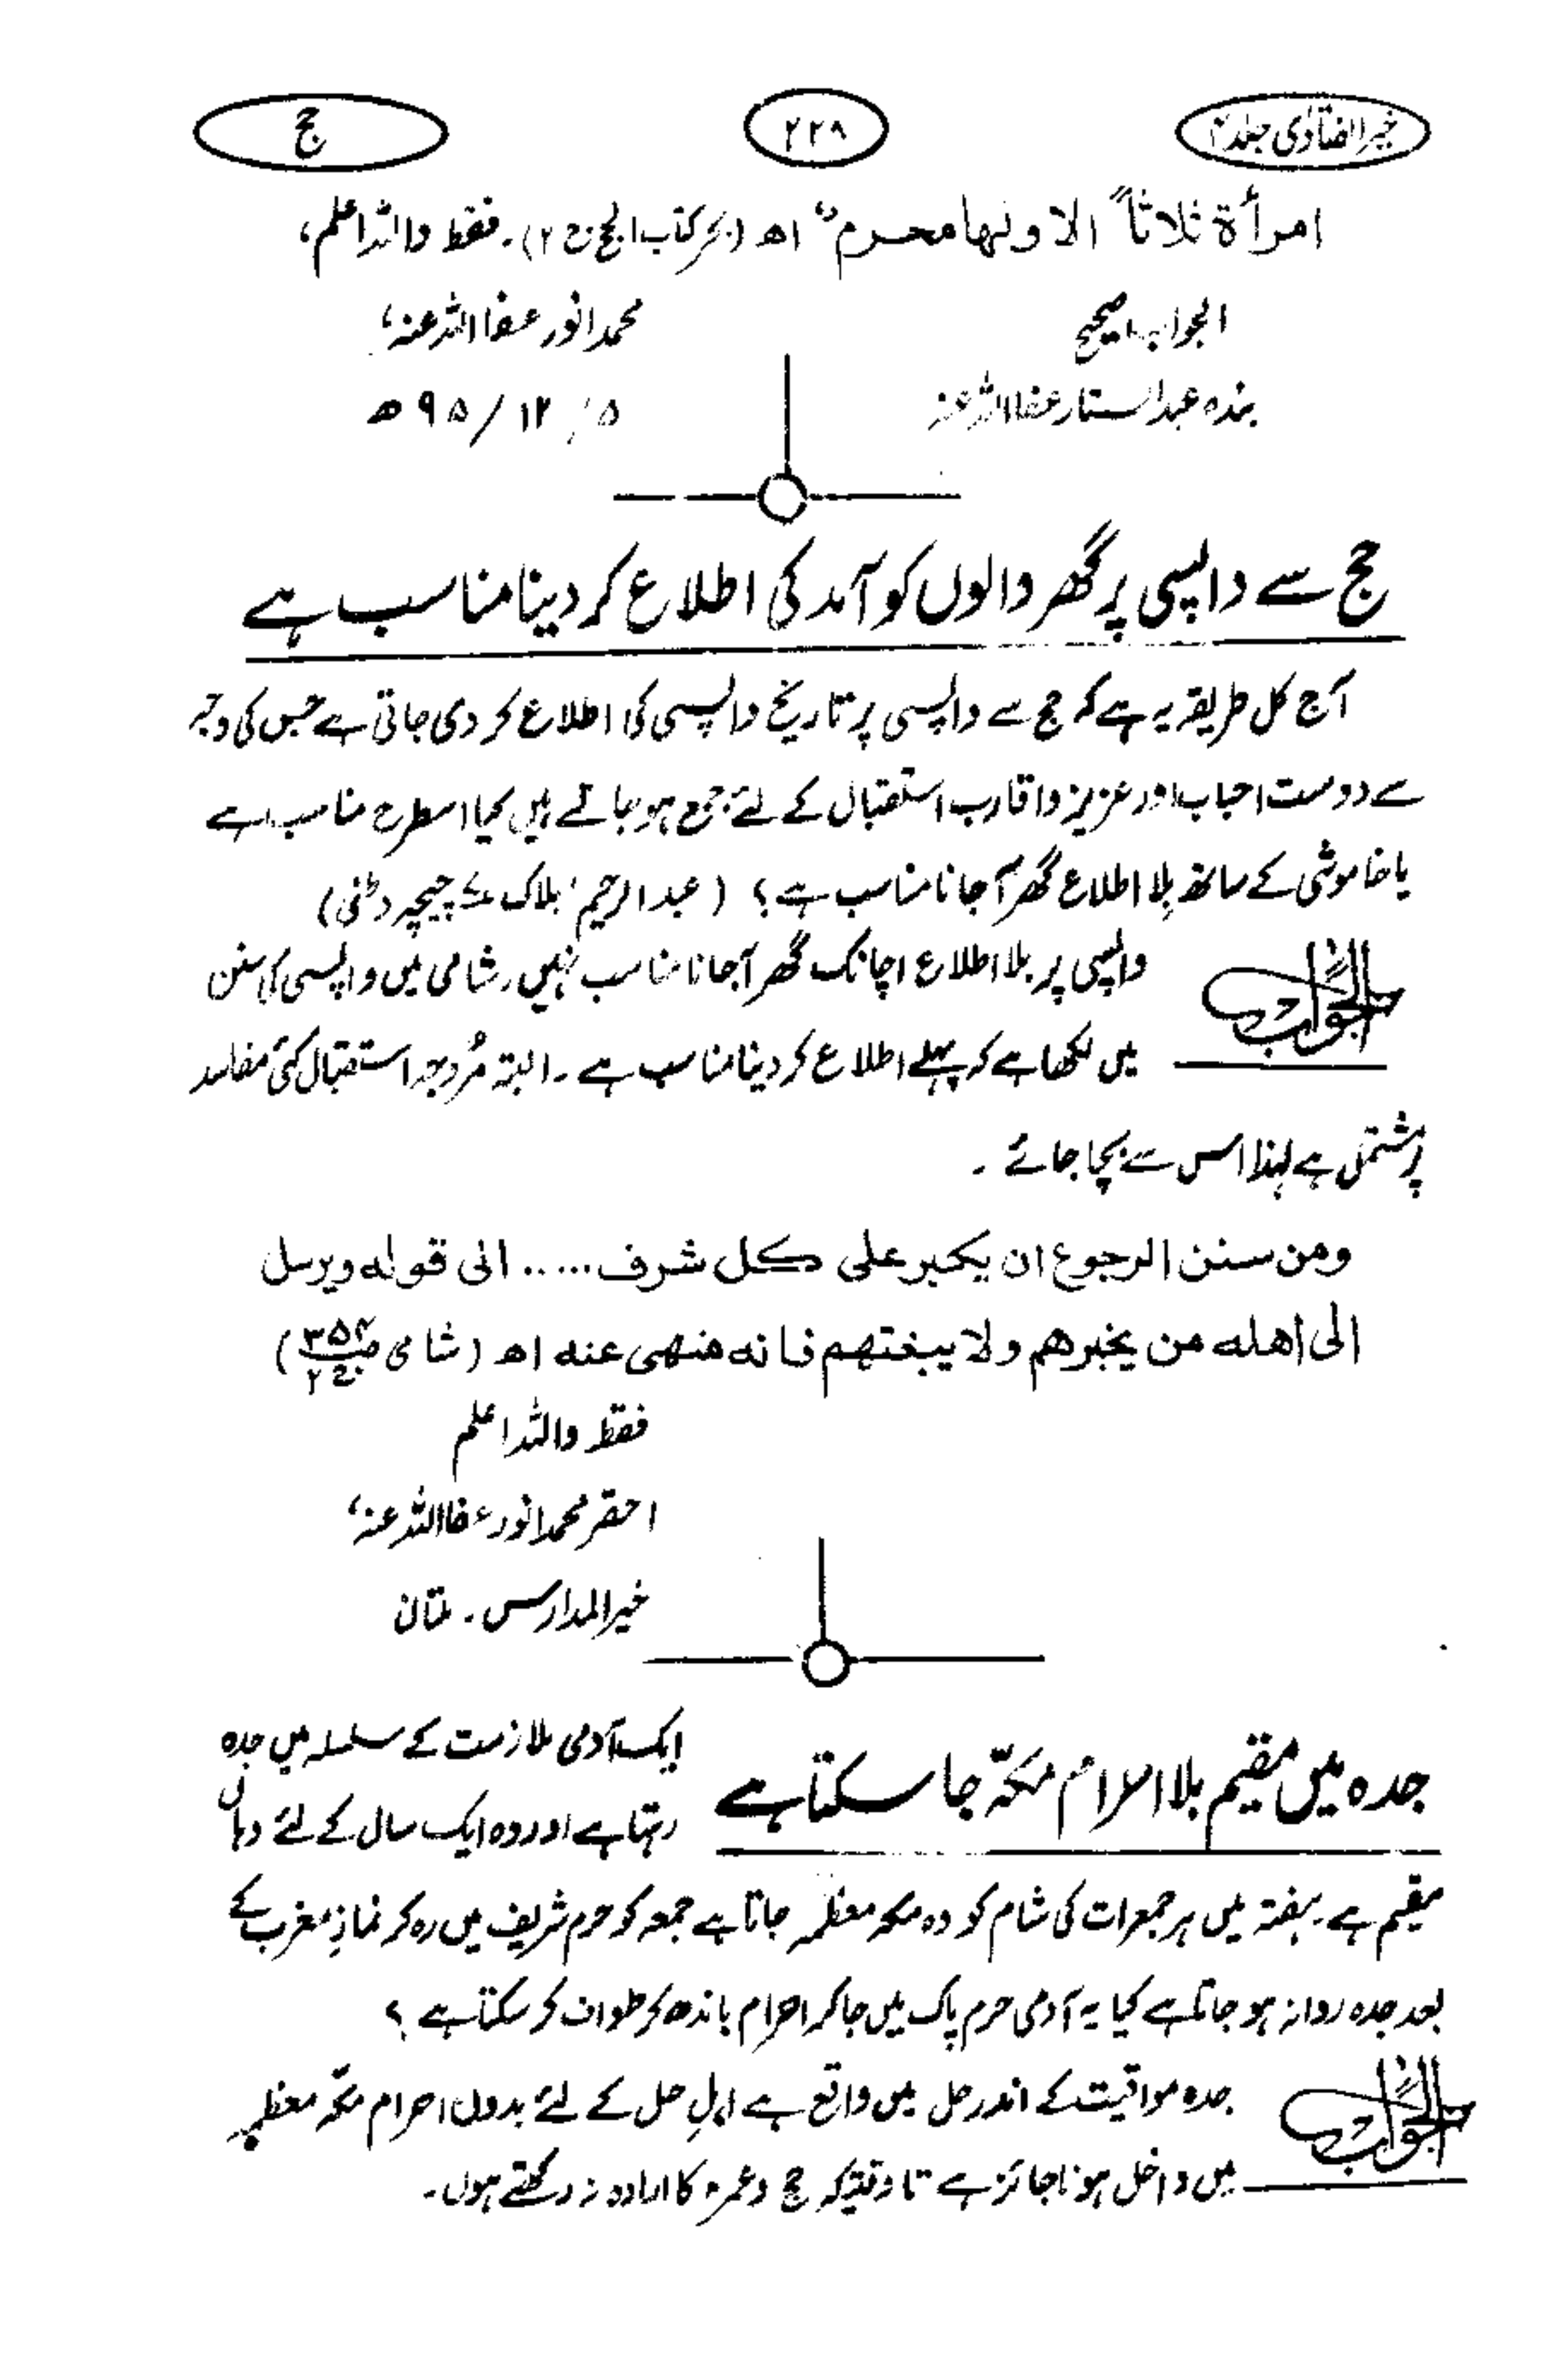 خیر الفتاوی جلد ۴
۲۲۸
حج
امرأة ثلاثاً الا ولها محرم" اھ (بحر کتاب الحج ج ۲)۔ فقط واللہ اعلم،
الجواب صحیح
محمد انور عفا اللہ عنہ،
بندہ عبدالستار عفا اللہ عنہ
۵/ ۱۲/ ۹۵ ھ
حج سے واپسی پر گھر والوں کو آمد کی اطلاع کر دینا مناسب ہے
آج کل طریقہ یہ ہے کہ حج سے واپسی پر تاریخ واپسی کی اطلاع کر دی جاتی ہے جس کی وجہ
سے دوست احباب اور عزیز و اقارب استقبال کے لئے جمع ہو جاتے ہیں کیا اسطرح مناسب ہے
یا خاموشی کے ساتھ بلا اطلاع گھر آجانا مناسب ہے؟ (عبد الرحیم، بلاک چیچہ وطنی)
الجواب
واپسی پر بلا اطلاع اچانک گھر آجانا مناسب نہیں۔ شامی میں واپسی کی سنن
میں لکھا ہے کہ پہلے اطلاع کر دینا مناسب ہے۔ البتہ مُروجہ استقبال کئی مفاسد
پر مشتمل ہے لہذا اس سے بچا جائے ۔
ومن سنن الرجوع ان یکبر علی کل شرف ..... الی قوله ویرسل
الی اهله من یخبرهم ولا یبغتهم فانه منهی عنه اھ (شامی ص۳۵۴ ج۲)
فقط واللہ اعلم
احقر محمد انور عفا اللہ عنہ،
خیر المدارس ۔ ملتان
جدہ میں مقیم بلا احرام مکہّ جا سکتا ہے
ایک آدمی ملازمت کے سلسلہ میں جدہ
رہتا ہے اور وہ ایک سال کے لئے وہاں
مقیم ہے۔ ہفتہ میں ہر جمعرات کی شام کو وہ مکہ معظمہ جاتا ہے جمعہ کو حرم شریف میں رہ کر نمازِ مغرب کے
بعد جدہ روانہ ہو جاتا ہے کیا یہ آدمی حرم پاک میں جاکر احرام باندھ کر طواف کر سکتا ہے ؟
الجواب
جدہ مواقیت کے اندر حل میں واقع ہے اہلِ حل کے لئے بدوں احرام مکّہ معظمہ
میں داخل ہونا جائز ہے تا وقتیکہ حج و عمرہ کا ارادہ نہ رکھتے ہوں۔